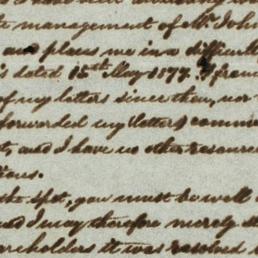 management of Mr. John
and places me in a difficulty
is dated 15th May 1877. I
of my letters since then, nor
forwarded my letters
and I have no other resource
the spot, you must be well
and I may therefore merely
it was resolved